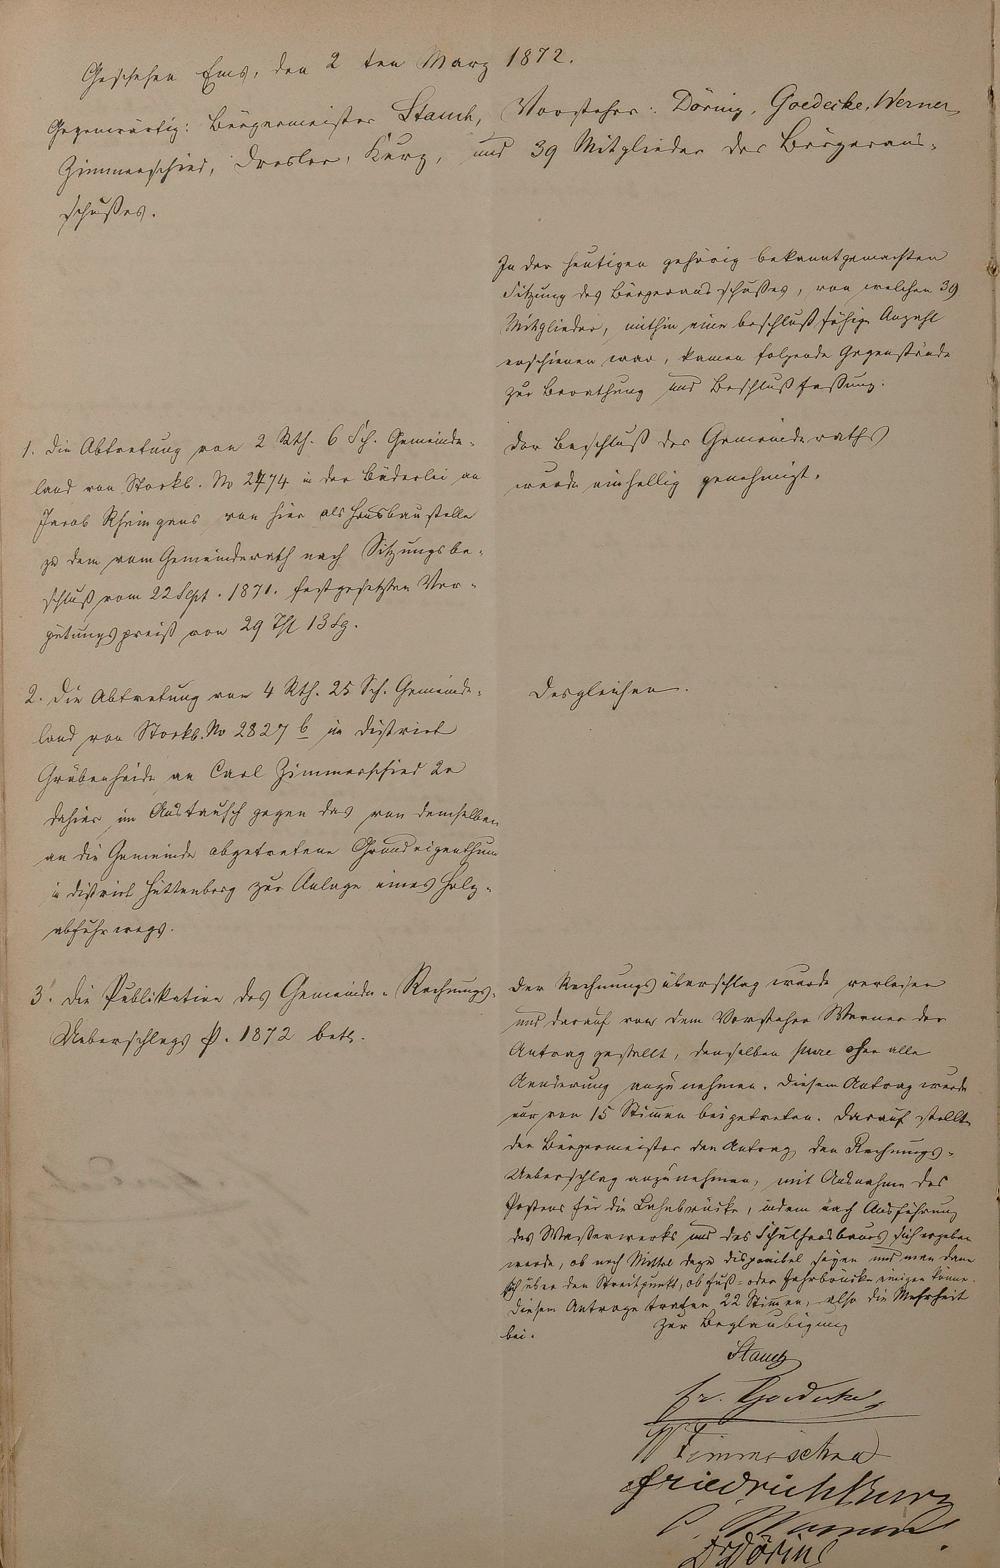 Geschehen Ems, den 2 ten März 1872.
Gegenwärtig: Bürgermeister Stauch, Vorsteher: Döring, Goedecke, Werner,
Zimmerschied, Dresler, Kurz, und 39 Mitglieder des Bürgeraus-
schußes.
In der heutigen gehörig bekanntgemachten
Sitzung des Bürgerausschußes, von welchen 39
Mitglieder, mithin eine beschlußfähige Anzahl
erschienen war, kamen folgende Gegenstände
zur Berathung und Beschlußfassung.
1. Die Abtretung von 2 Rth. 6 Sch. Gemeinde-
land von Stockb. No 2474 in der Bäderlei an
Jacob Rheingans von hier als Hausbaustelle
zu dem vom Gemeinderath nach Sitzungsbe-
schluß vom 22 Sept. 1871. festgesetzten Ver-
gütungspreiß von 29 Thl 13 Sg.
der Beschluß des Gemeinderaths
wurde einhellig genehmigt.
2. Die Abtretung von 4 Rth. 25 Sch. Gemeinde-
land von Stockb. No 2827 b im District
Grübenheide an Carl Zimmerschied 2r
dahier im Austausch gegen das von demselben
an die Gemeinde abgetretene Grundeigenthum
in District Hüttenberg zur Anlage eines Holz-
abfuhrwegs.
Desgleichen.
3. Die Publikation des Gemeinde-Rechnungs-
Ueberschlags p. 1872 betr.
Der Rechnungsüberschlag wurde verlesen
und darauf von dem Vorsteher Werner der
Antrag gestellt, denselben pure ohne alle
Aenderung anzunehmen. Diesem Antrag wurde
nur von 15 Stimmen beigetreten. Darauf stellte
der Bürgermeister den Antrag, den Rechnungs-
Ueberschlag anzunehmen, mit Ausnahme des
Postens für die Lahnbrücke, indem nach Ausführung
des Wasserwerks und des Schulhausbaues sich ergeben
werde, ob noch Mittel dazu disponibel seyen und man dann
sich über den Streitpunkt, ob Fuß- oder Fahrbrücke einigen könne.
Diesem Antrage traten 22 Stimmen, also die Mehrheit
bei.
Zur Beglaubigung
Stauch
Fr. Goedecke
W Zimmerschied
Friedrich Kurz
C. Werner
Dr Döring